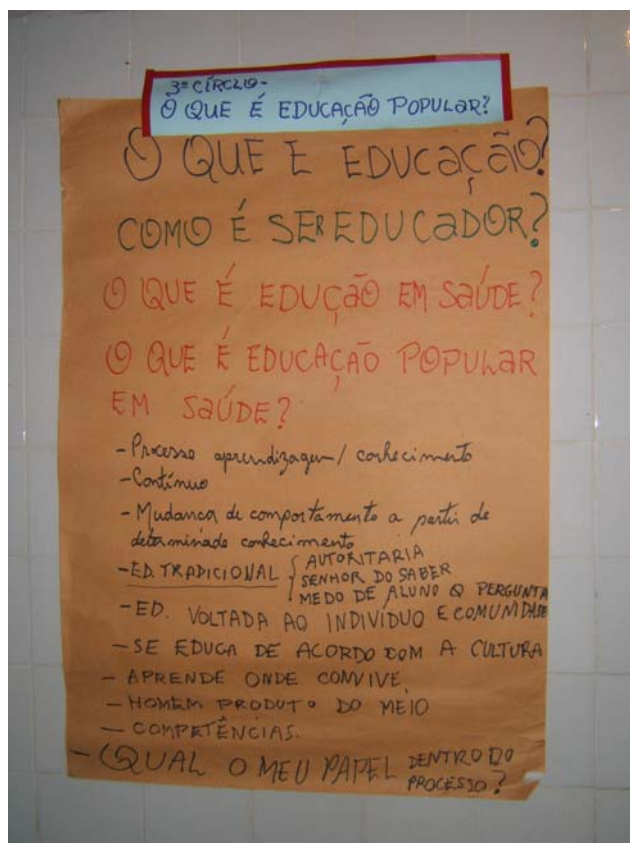 3º CÍRCLO-
O QUE É EDUCAÇÃO POPULAR?
O QUE E EDUCAÇÃO?
COMO É SER EDUCADOR?
O QUE É EDUÇÃO EM SAÚDE?
O QUE É EDUCAÇÃO POPULAR
EM SAÚDE?
- Processo aprendizagem / conhecimento
- Contínuo
- Mudança de comportamento a partir de
determinado conhecimento
- ED. TRADICIONAL { AUTORITARIA
SENHOR DO SABER
MEDO DE ALUNO Q PERGUNTA
- ED. VOLTADA AO INDIVIDUO E COMUNIDADE
- SE EDUCA DE ACORDO COM A CULTURA
- APRENDE ONDE CONVIVE.
- HOMEM PRODUTO DO MEIO
- COMPETÊNCIAS.
- QUAL O MEU PAPEL DENTRO DO
PROCESSO?